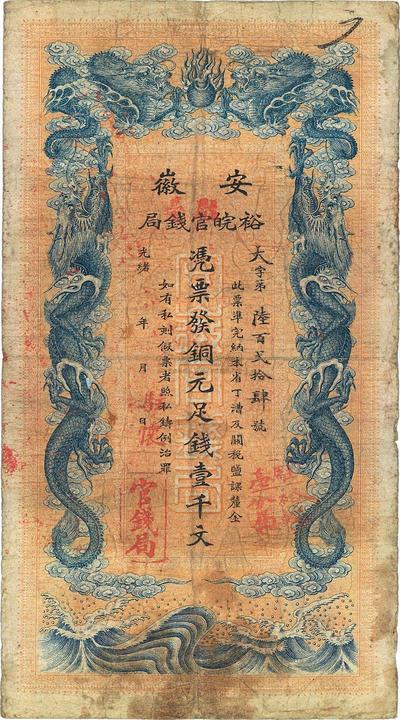 安徽
裕皖官錢局
天字第陸百貳拾肆號
此票準完納本省丁漕及關稅鹽課釐金
憑票發銅元足錢壹千文
如有私刻假票者照私鑄例治罪
光緒 年 月 日
官錢局